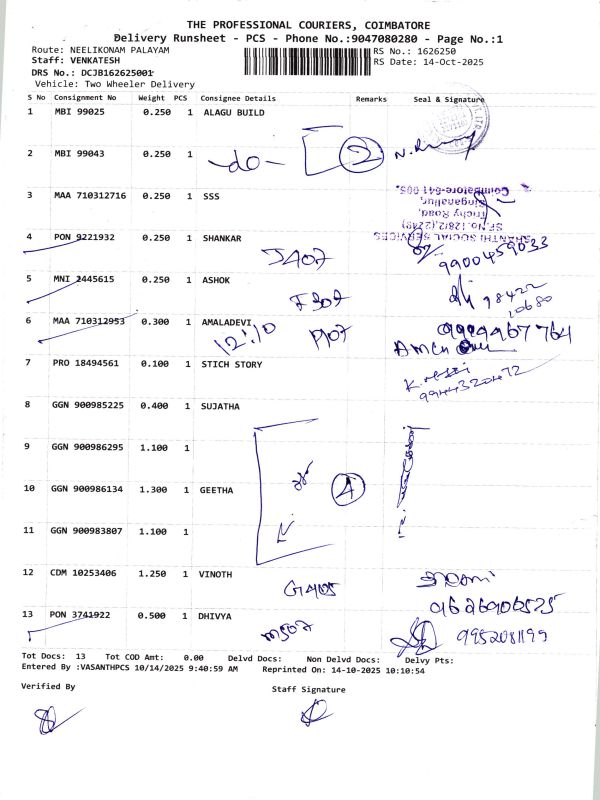 THE PROFESSIONAL COURIERS, COIMBATORE
Delivery Runsheet - PCS - Phone No.:9047080280 - Page No.:1
Route: NEELIKONAM PALAYAM RS No.: 1626250
Staff: VENKATESH RS Date: 14-Oct-2025
DRS No.: DCJB162625001
Vehicle: Two Wheeler Delivery
S No Consignment No Weight PCS Consignee Details Remarks Seal & Signature
1 MBI 99025 0.250 1 ALAGU BUILD
2 MBI 99043 0.250 1 -do- 2
3 MAA 710312716 0.250 1 SSS
SHANTHI SOCIAL SERVICES
SF.No.128/2,(2749)
Trichy Road,
Singanallur,
Coimbatore-641 005.
4 PON 9221932 0.250 1 SHANKAR
J407 9900459033
5 MNI 2445615 0.250 1 ASHOK
F302 98422
10680
6 MAA 710312953 0.300 1 AMALADEVI
12:10 P107 9994967764
7 PRO 18494561 0.100 1 STICH STORY
9944320472
8 GGN 900985225 0.400 1 SUJATHA
9 GGN 900986295 1.100 1
10 GGN 900986134 1.300 1 GEETHA 4
11 GGN 900983807 1.100 1
12 CDM 10253406 1.250 1 VINOTH
G405
9626906525
13 PON 3741922 0.500 1 DHIVYA
M507 9952081199
Tot Docs: 13 Tot COD Amt: 0.00 Delvd Docs: Non Delvd Docs: Delvy Pts:
Entered By :VASANTHPCS 10/14/2025 9:40:59 AM Reprinted On: 14-10-2025 10:10:54
Verified By Staff Signature